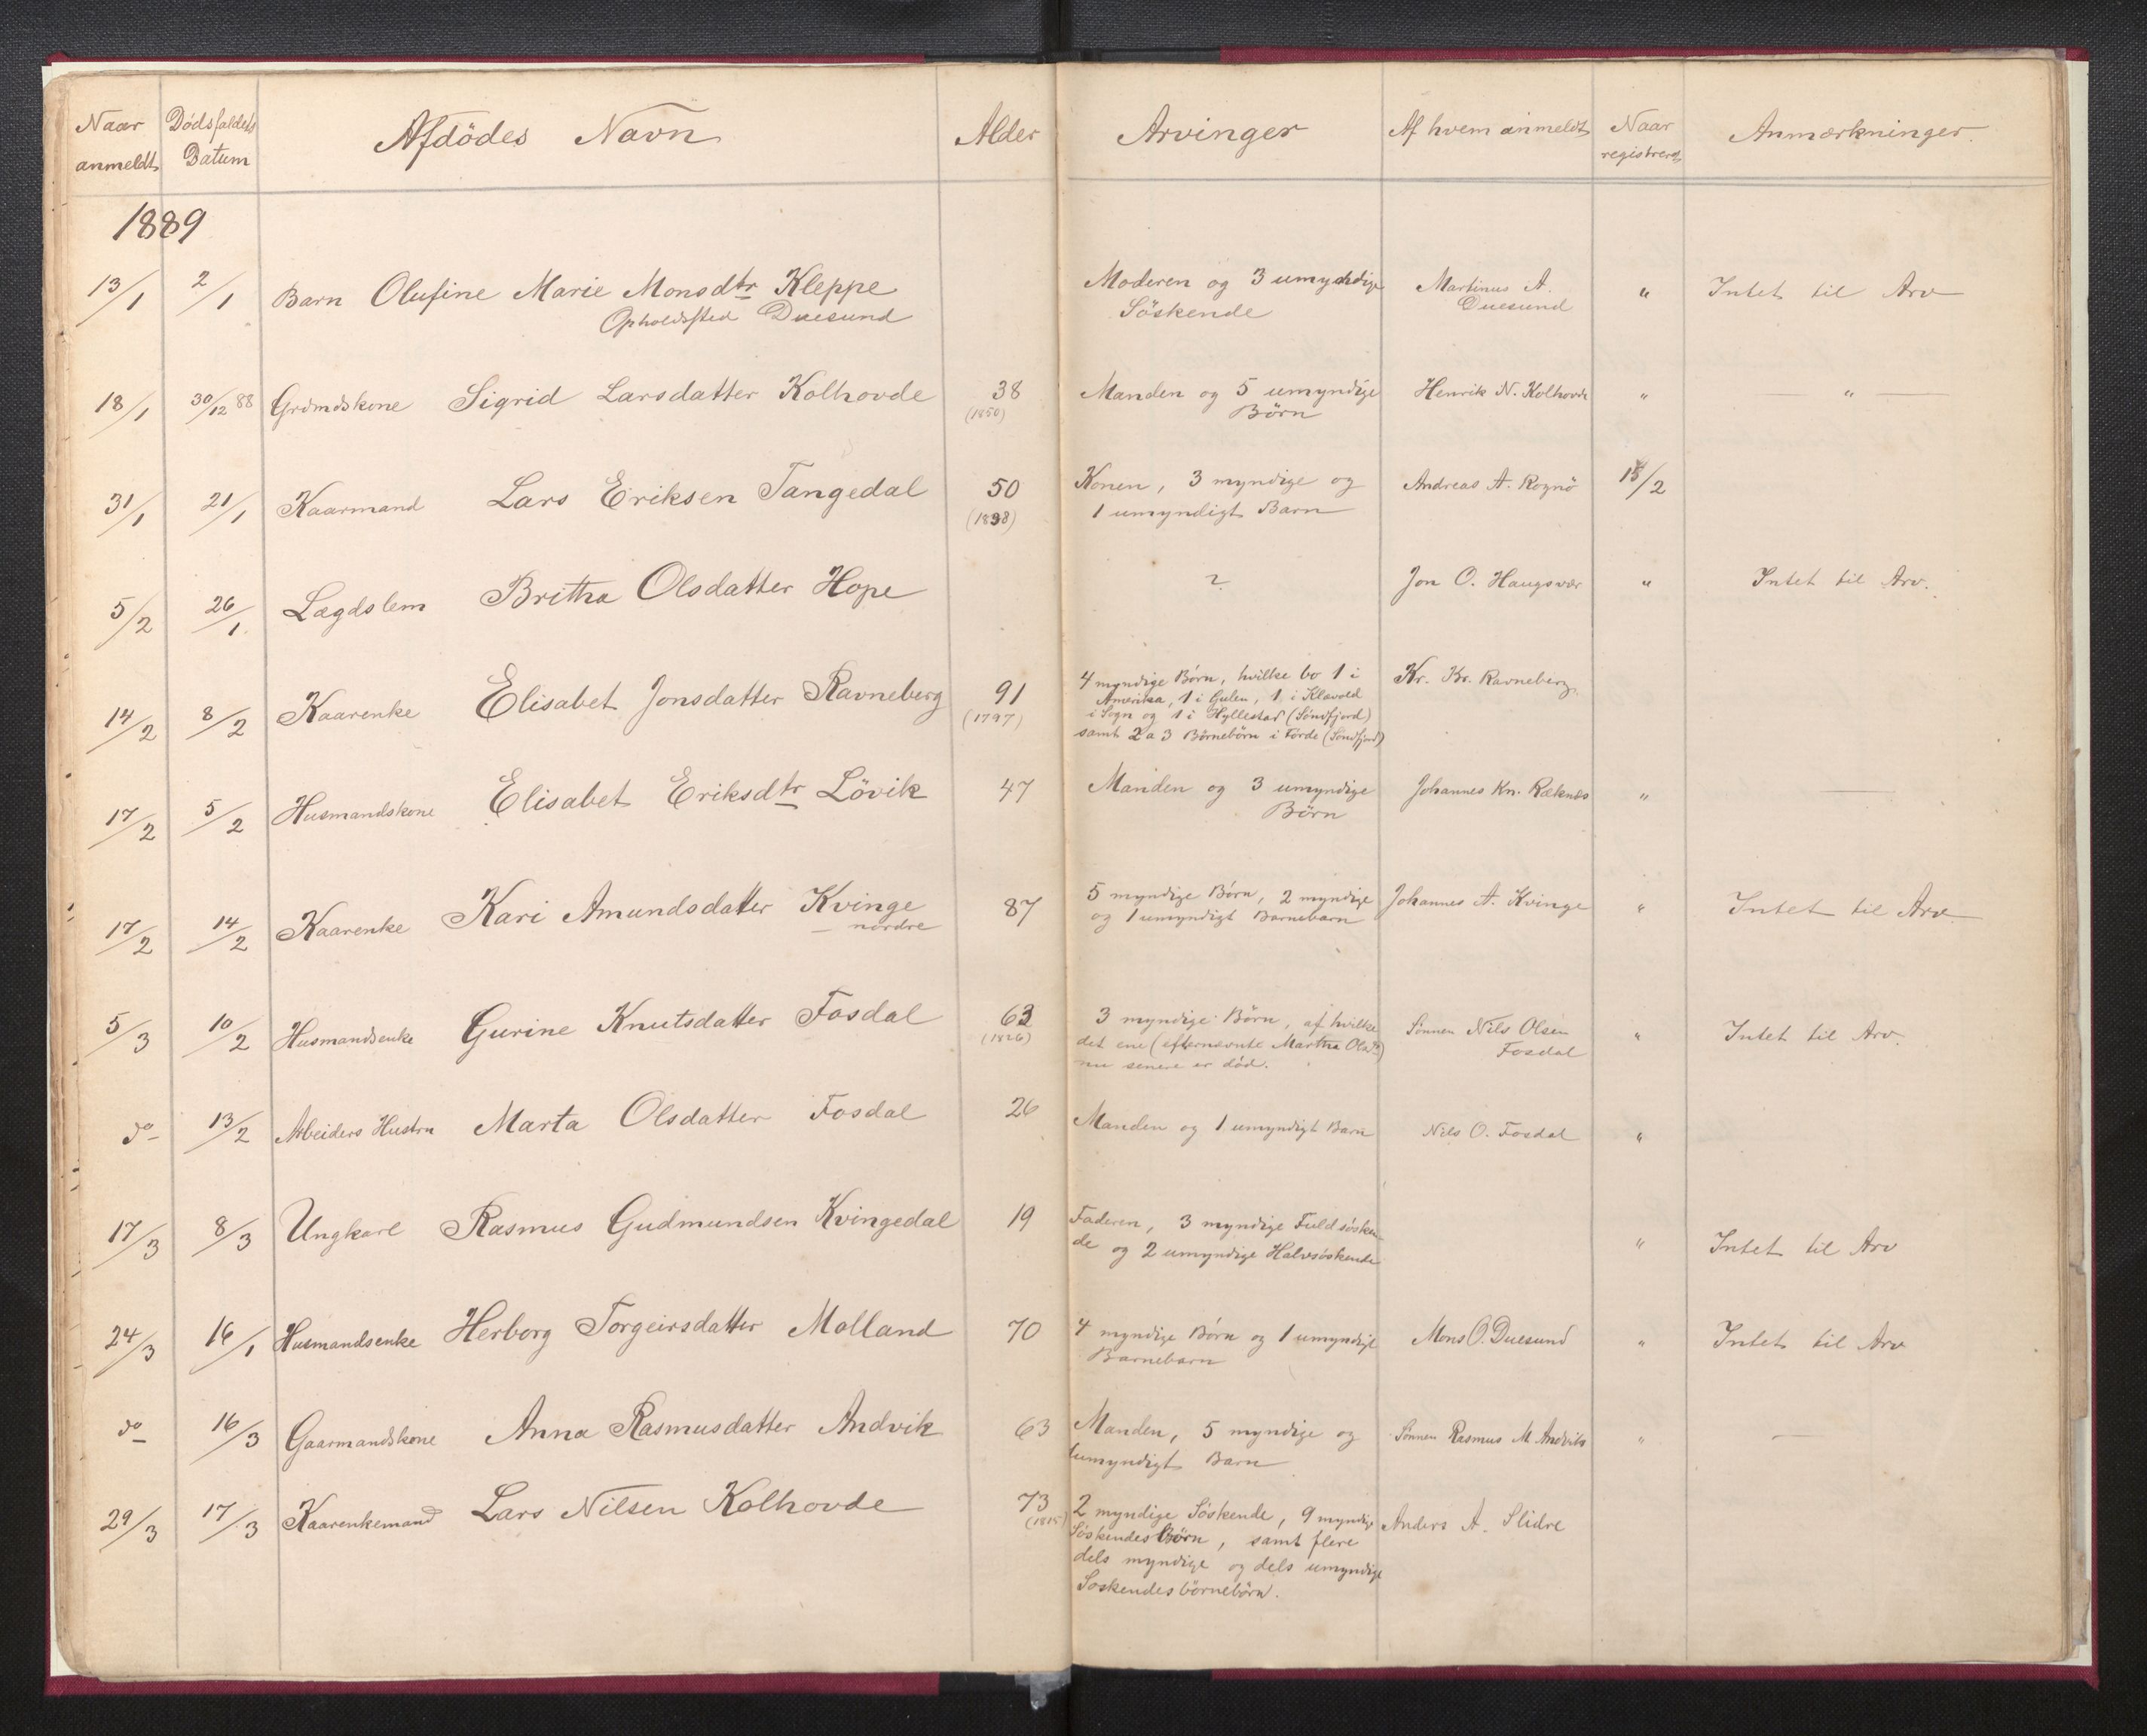 Naar anmeldt | Dødsfaldets Datum | Afdödes Navn | Alder | Arvinger | Af hvem anmeldt | Naar registreret | Anmærkninger.
1889
13/1 | 2/1 | Barn Olufine Marie Monsdtr Kleppe | | Moderen og 3 umyndige | Martinus A. | " | Intet til Arv
Opholdssted Duesund | | Söskende | Duesund
18/1 | 30/12 88 | Grdmdskone Sigrid Larsdatter Kolhovde | 38 | Manden og 5 umyndige | Henrik N. Kolhovde | " | " —
(1850) | Börn
31/1 | 21/1 | Kaarmand Lars Eriksen Tangedal | 50 | Konen, 3 myndige og | Andreas A. Rognö | 15/2
(1838) | 1 umyndigt Barn
5/2 | 26/1 | Lægdslem Britha Olsdatter Hope | | ? | Jon O. Haugsvær | " | Intet til Arv.
14/2 | 8/2 | Kaarenke Elisabet Jonsdatter Ravneberg | 91 | 4 myndige Börn, hvilke bo 1 i | Kr. Kr. Ravneberg.
(1797) | Amerika, 1 i Gulen, 1 i Klævold
i Sogn og 1 i Hyllestad (Söndfjord)
samt 2 a 3 Börnebörn i Förde (Söndfjord)
17/2 | 5/2 | Husmandskone Elisabet Eriksdtr Lövik | 47 | Manden og 3 umyndige | Johannes Kn. Ræknes | " | —
Börn
17/2 | 14/2 | Kaarenke Kari Amundsdatter Kvinge | 87 | 5 myndige Börn, 2 myndige | Johannes A. Kvinge | " | Intet til Arv
nordre | og 1 umyndigt Barnebarn
5/3 | 10/2 | Husmandsenke Gurine Knutsdatter Fosdal | 63 | 3 myndige Börn, af hvilke | Sönnen Nils Olsen | " | Intet til Arv.
(1826) | det ene (efternævnte Martha Olsdtr) | Fosdal
nu senere er död.
do | 13/2 | Arbeiders Hustru Marta Olsdatter Fosdal | 26 | Manden og 1 umyndigt Barn | Nils O. Fosdal | "
17/3 | 8/3 | Ungkarl Rasmus Gudmundsen Kvingedal | 19 | Faderen, 3 myndige Fuldsösken- | | " | Intet til Arv
de og 2 umyndige Halvsöskende
24/3 | 16/1 | Husmandsenke Herborg Torgeirsdatter Molland | 70 | 4 myndige Börn og 1 umyndige | Mons O. Duesund | " | Intet til Arv
Barnebarn
do | 16/3 | Gaarmandskone Anna Rasmusdatter Andvik | 63 | Manden, 5 myndige og | Sönnen Rasmus M Andvik | " | —
1 umyndigt Barn
29/3 | 17/3 | Kaarenkemand Lars Nilsen Kolhovde | 73 | 2 myndige Söskende, 9 myndige | Anders A. Slidre
(1815) | Söskendes Börn, samt flere
dels myndige og dels umyndige
Söskendesbörnebörn.